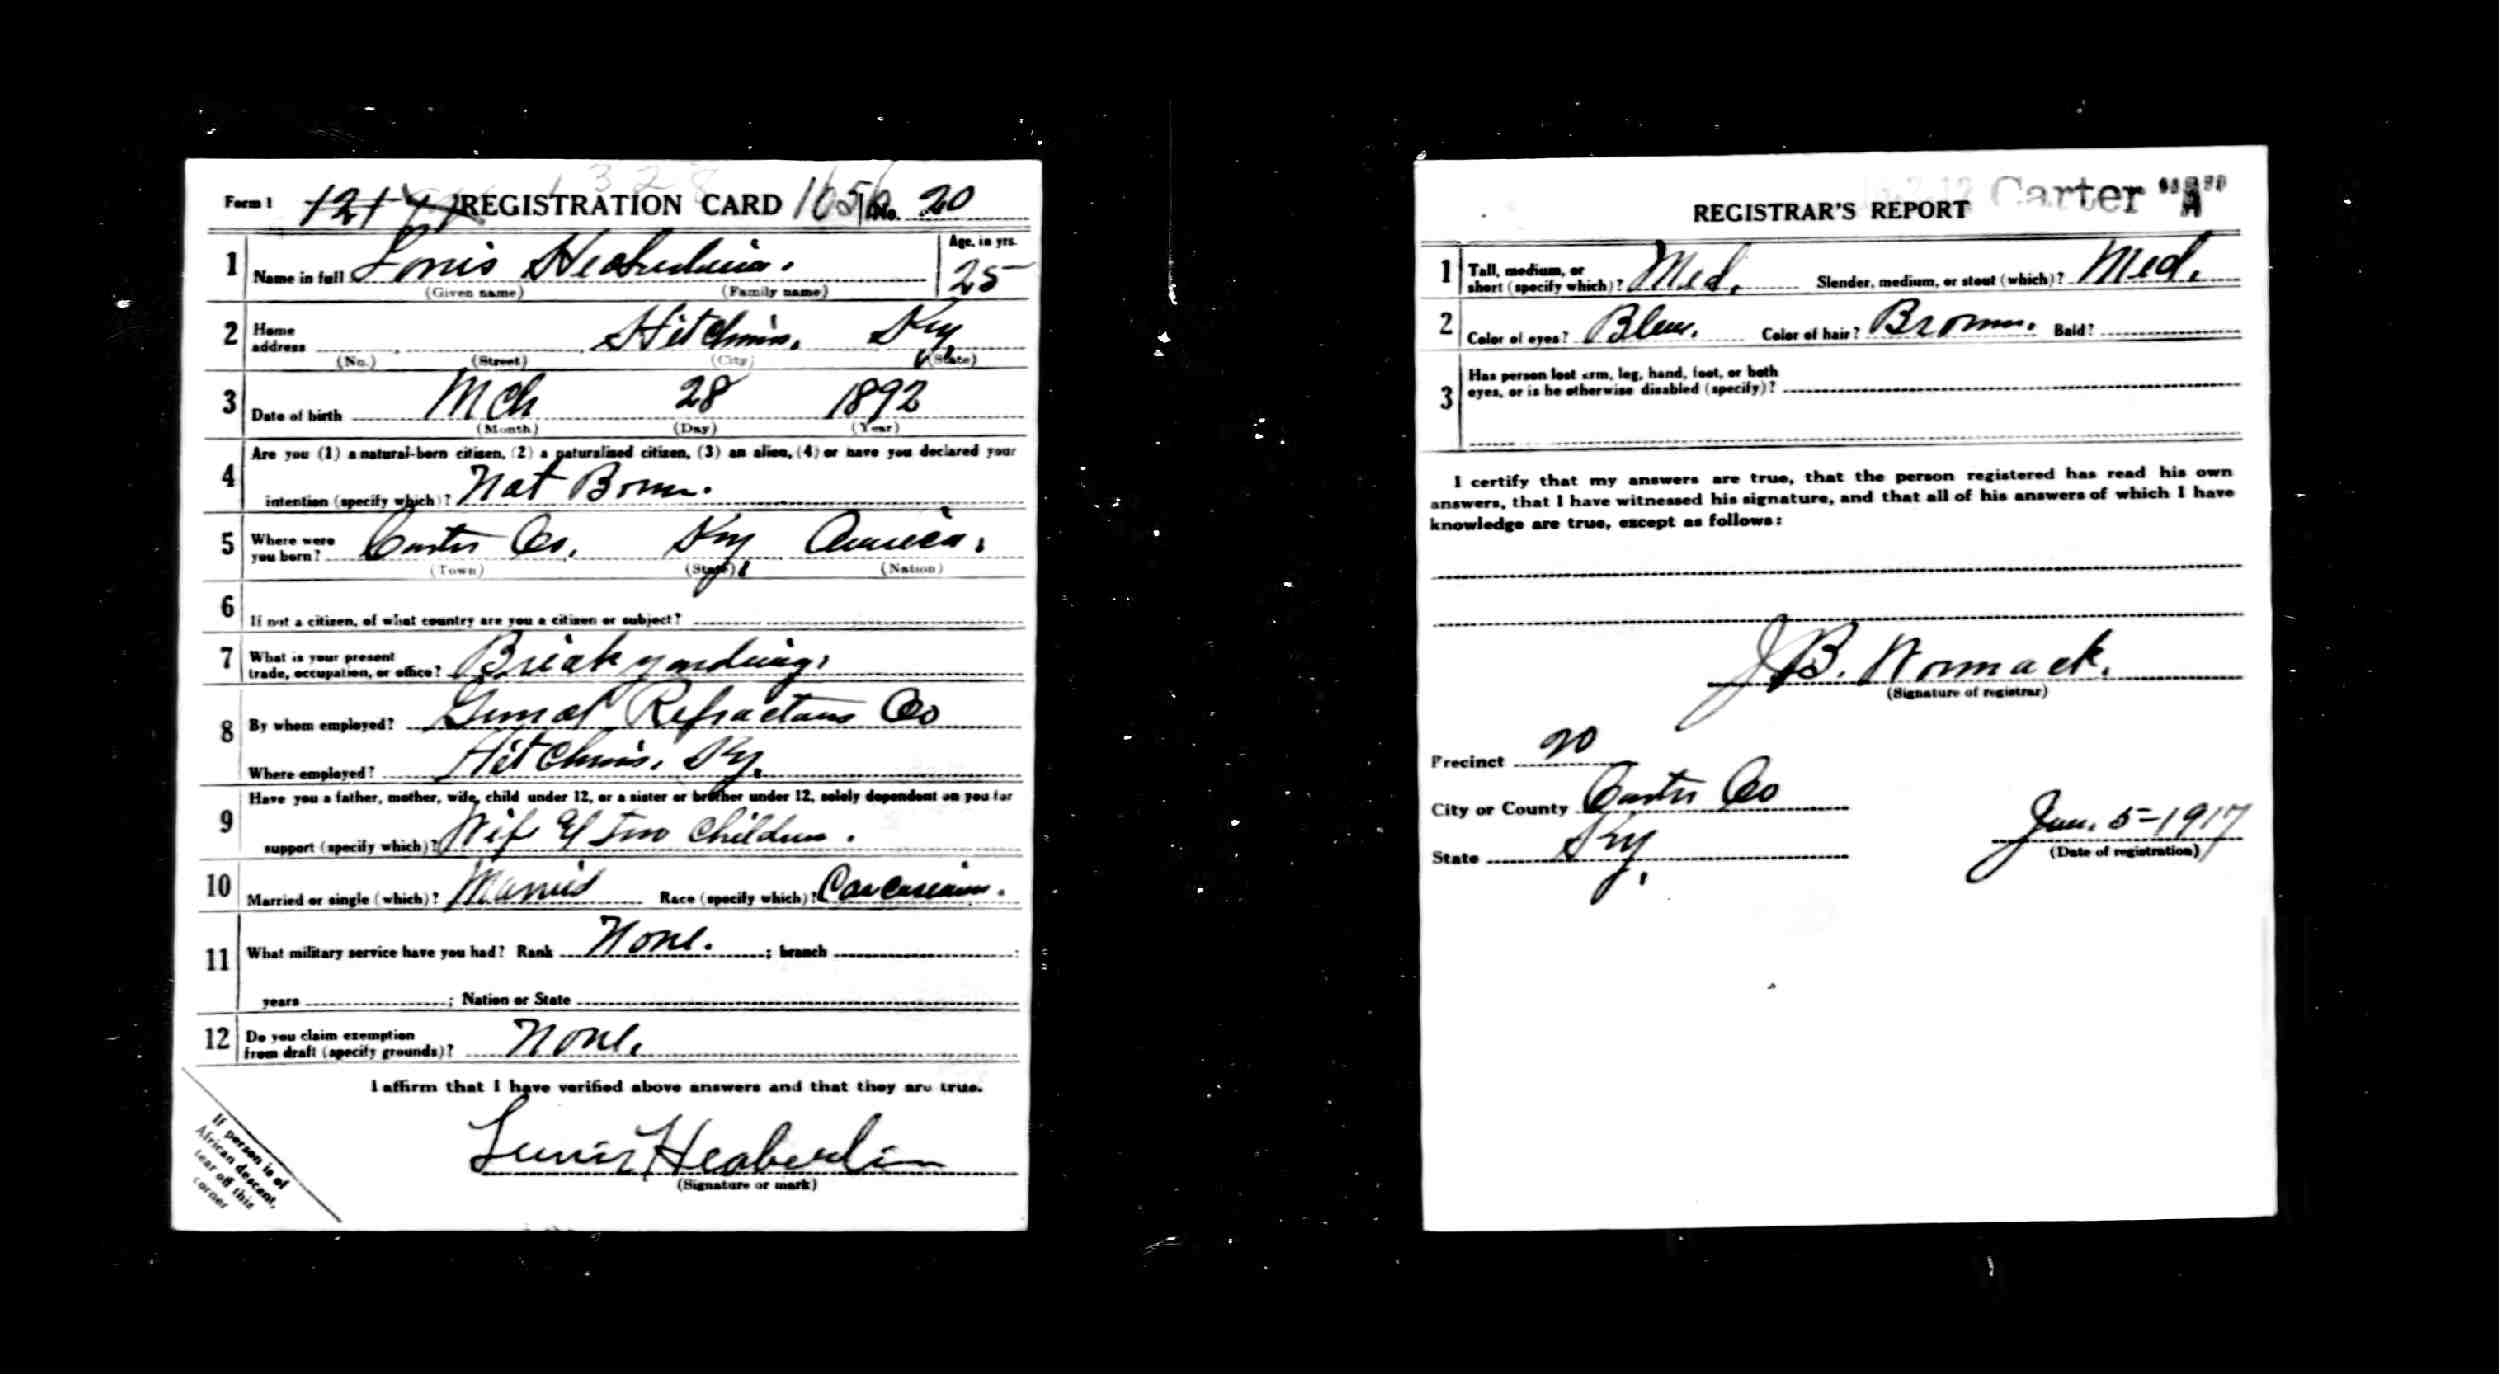 Form 1 REGISTRATION CARD No. 20
1 Name in full Louis Heaberlin. Age, in yrs. 25
(Given name) (Family name)
2 Home address Hitchins, Ky
(No.) (Street) (City) (State)
3 Date of birth Mch 28 1892
(Month) (Day) (Year)
4 Are you (1) a natural-born citizen, (2) a naturalized citizen, (3) an alien, (4) or have you declared your
intention (specify which)? Nat Born.
5 Where were you born? Carter Co, Ky America.
(Town) (State) (Nation)
6 If not a citizen, of what country are you a citizen or subject?
7 What is your present trade, occupation, or office? Brick yarding,
8 By whom employed? General Refractories Co
Where employed? Hitchins, Ky.
9 Have you a father, mother, wife, child under 12, or a sister or brother under 12, solely dependent on you for
support (specify which)? Wife & Two Children.
10 Married or single (which)? Married Race (specify which)? Caucasian.
11 What military service have you had? Rank None. ; branch ;
years ; Nation or State
12 Do you claim exemption from draft (specify grounds)? None.
I affirm that I have verified above answers and that they are true.
Heaberlin
(Signature or mark)
If person is of
African descent,
tear off this
corner
REGISTRAR'S REPORT Carter "A"
1 Tall, medium, or short (specify which)? Med. Slender, medium, or stout (which)? Med.
2 Color of eyes? Blue. Color of hair? Brown. Bald?
3 Has person lost arm, leg, hand, foot, or both
eyes, or is he otherwise disabled (specify)?
I certify that my answers are true, that the person registered has read his own
answers, that I have witnessed his signature, and that all of his answers of which I have
knowledge are true, except as follows:
J.B. Womack.
(Signature of registrar)
Precinct 20
City or County Carter Co
State Ky,
Jun. 5-1917
(Date of registration)